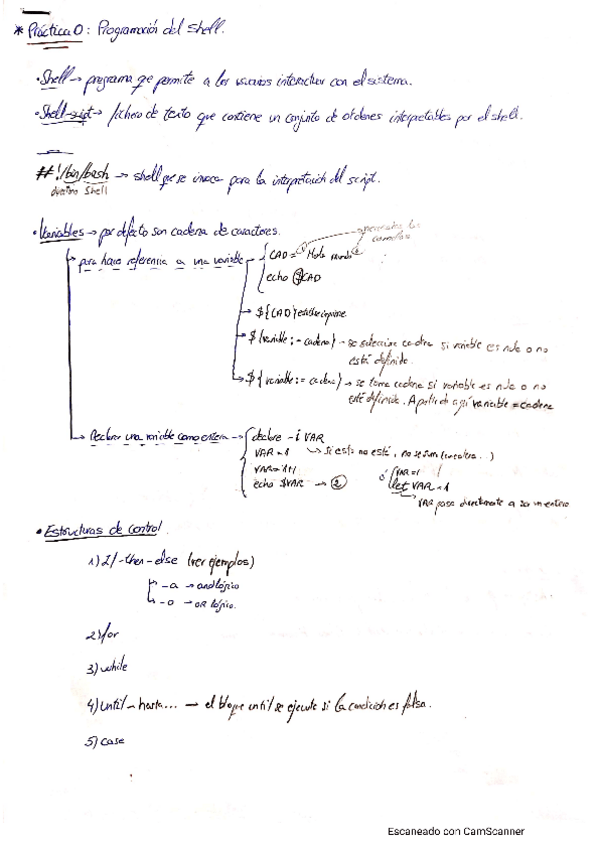 * Práctica 0: Programación del Shell.
• Shell → programa que permite a los usuarios interactuar con el sistema.
• Shell-script → fichero de texto que contiene un conjunto de órdenes interpretables por el shell.
##!/bin/bash → shell que se invoca para la interpretación del script.
Shell
• Variables → por defecto son cadena de caracteres.
para hacer referencia a una variable
CAD = "Hola mundo"
echo $CAD
${CAD}
${variable:-cadena} → se selecciona cadena si variable es nula o no
está definida.
${variable:=cadena} → se toma cadena si variable es nula o no
está definida. A partir de aquí variable = cadena
Declarar una variable como entera → declare -i VAR
VAR=1 → si esto no está, no se suma
VAR=1+1
echo $VAR → 2
ó VAR=1
let VAR+1
→ VAR pasa directamente a ser un entero
• Estructuras de control
1) If-then-else (ver ejemplos)
-a → and lógico
-o → OR lógico.
2) for
3) while
4) until → hasta... → el bloque until se ejecuta si la condición es falsa.
5) case
Escaneado con CamScanner